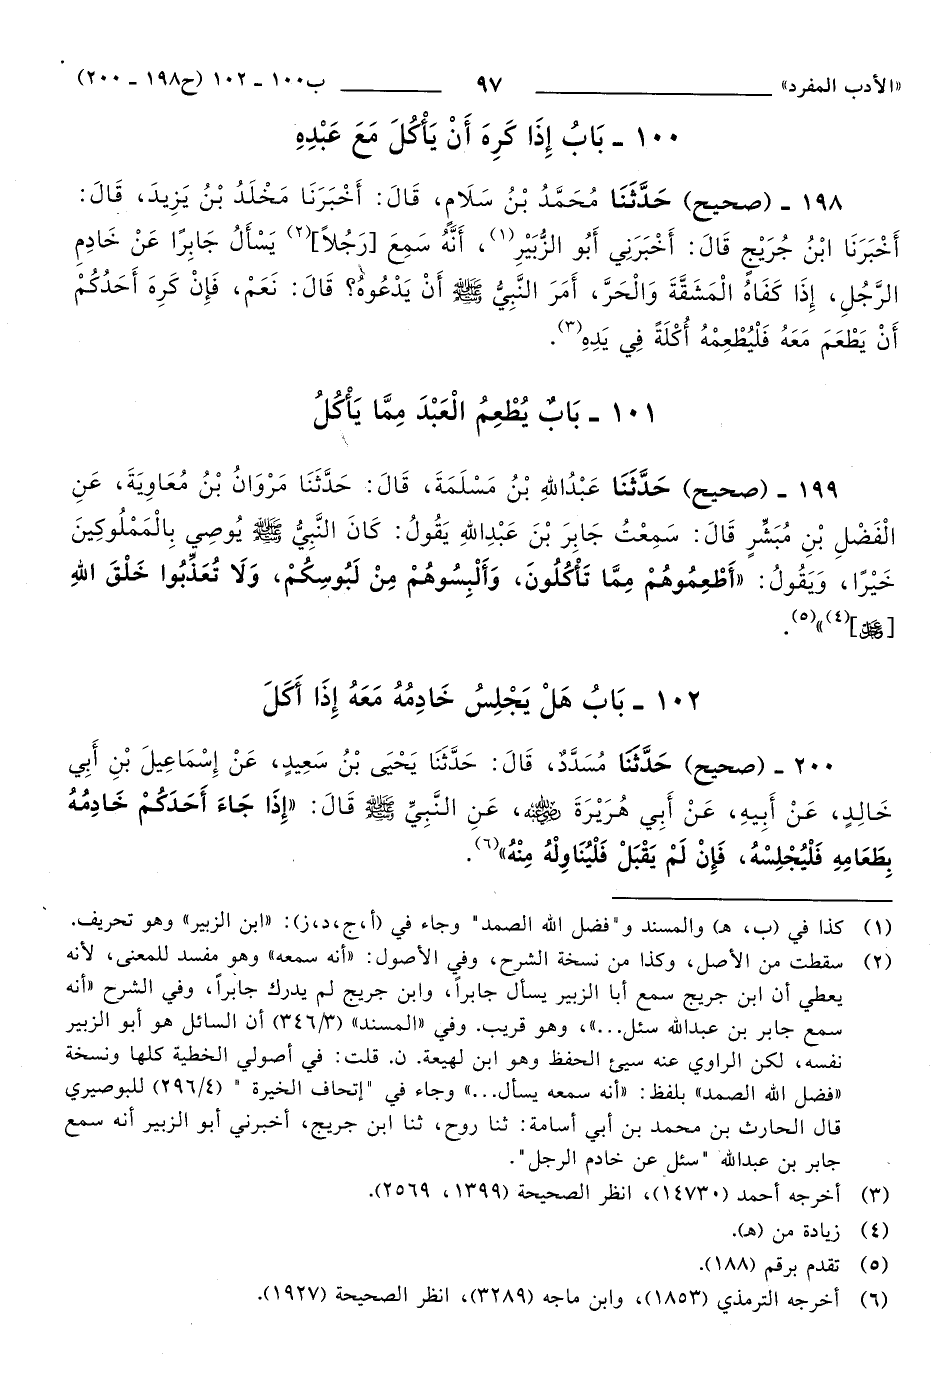 «الأدب المفرد» ٩٧ ب١٠٠ ـ ١٠٢ (ح١٩٨ ـ ٢٠٠)
١٠٠ ـ بَابُ إِذَا كَرِهَ أَنْ يَأْكُلَ مَعَ عَبْدِهِ
١٩٨ ـ (صحيح) حَدَّثَنَا مُحَمَّدُ بْنُ سَلَامٍ، قَالَ: أَخْبَرَنَا مَخْلَدُ بْنُ يَزِيدَ، قَالَ:
أَخْبَرَنَا ابْنُ جُرَيْجٍ قَالَ: أَخْبَرَنِي أَبُو الزُّبَيْرِ(١)، أَنَّهُ سَمِعَ [رَجُلاً](٢) يَسْأَلُ جَابِرًا عَنْ خَادِمِ
الرَّجُلِ، إِذَا كَفَاهُ الْمَشَقَّةَ وَالْحَرَّ، أَمَرَ النَّبِيُّ ﷺ أَنْ يَدْعُوهُ؟ قَالَ: نَعَمْ، فَإِنْ كَرِهَ أَحَدُكُمْ
أَنْ يَطْعَمَ مَعَهُ فَلْيُطْعِمْهُ أُكْلَةً فِي يَدِهِ(٣).
١٠١ ـ بَابٌ يُطْعِمُ الْعَبْدَ مِمَّا يَأْكُلُ
١٩٩ ـ (صحيح) حَدَّثَنَا عَبْدُاللهِ بْنُ مَسْلَمَةَ، قَالَ: حَدَّثَنَا مَرْوَانُ بْنُ مُعَاوِيَةَ، عَنِ
الْفَضْلِ بْنِ مُبَشِّرٍ قَالَ: سَمِعْتُ جَابِرَ بْنَ عَبْدِاللهِ يَقُولُ: كَانَ النَّبِيُّ ﷺ يُوصِي بِالْمَمْلُوكِينَ
خَيْرًا، وَيَقُولُ: «أَطْعِمُوهُمْ مِمَّا تَأْكُلُونَ، وَأَلْبِسُوهُمْ مِنْ لَبُوسِكُمْ، وَلَا تُعَذِّبُوا خَلْقَ اللهِ
[ﷻ](٤)»(٥).
١٠٢ ـ بَابُ هَلْ يَجْلِسُ خَادِمُهُ مَعَهُ إِذَا أَكَلَ
٢٠٠ ـ (صحيح) حَدَّثَنَا مُسَدَّدٌ، قَالَ: حَدَّثَنَا يَحْيَى بْنُ سَعِيدٍ، عَنْ إِسْمَاعِيلَ بْنِ أَبِي
خَالِدٍ، عَنْ أَبِيهِ، عَنْ أَبِي هُرَيْرَةَ رضي الله عنه، عَنِ النَّبِيِّ ﷺ قَالَ: «إِذَا جَاءَ أَحَدَكُمْ خَادِمُهُ
بِطَعَامِهِ فَلْيُجْلِسْهُ، فَإِنْ لَمْ يَقْبَلْ فَلْيُنَاوِلْهُ مِنْهُ»(٦).
(١) كذا في (ب، هـ) والمسند و"فضل الله الصمد" وجاء في (أ،ج،د،ز): «ابن الزبير» وهو تحريف.
(٢) سقطت من الأصل، وكذا من نسخة الشرح، وفي الأصول: «أنه سمعه» وهو مفسد للمعنى، لأنه
يعطي أن ابن جريج سمع أبا الزبير يسأل جابراً، وابن جريج لم يدرك جابراً، وفي الشرح «أنه
سمع جابر بن عبدالله سئل...»، وهو قريب. وفي «المسند» (٣٤٦/٣) أن السائل هو أبو الزبير
نفسه، لكن الراوي عنه سيئ الحفظ وهو ابن لهيعة. ن. قلت: في أصولي الخطية كلها ونسخة
«فضل الله الصمد» بلفظ: «أنه سمعه يسأل...» وجاء في "إتحاف الخيرة " (٢٩٦/٤) للبوصيري
قال الحارث بن محمد بن أبي أسامة: ثنا روح، ثنا ابن جريج، أخبرني أبو الزبير أنه سمع
جابر بن عبدالله "سئل عن خادم الرجل".
(٣) أخرجه أحمد (١٤٧٣٠)، انظر الصحيحة (١٣٩٩، ٢٥٦٩).
(٤) زيادة من (هـ).
(٥) تقدم برقم (١٨٨).
(٦) أخرجه الترمذي (١٨٥٣)، وابن ماجه (٣٢٨٩)، انظر الصحيحة (١٩٢٧).